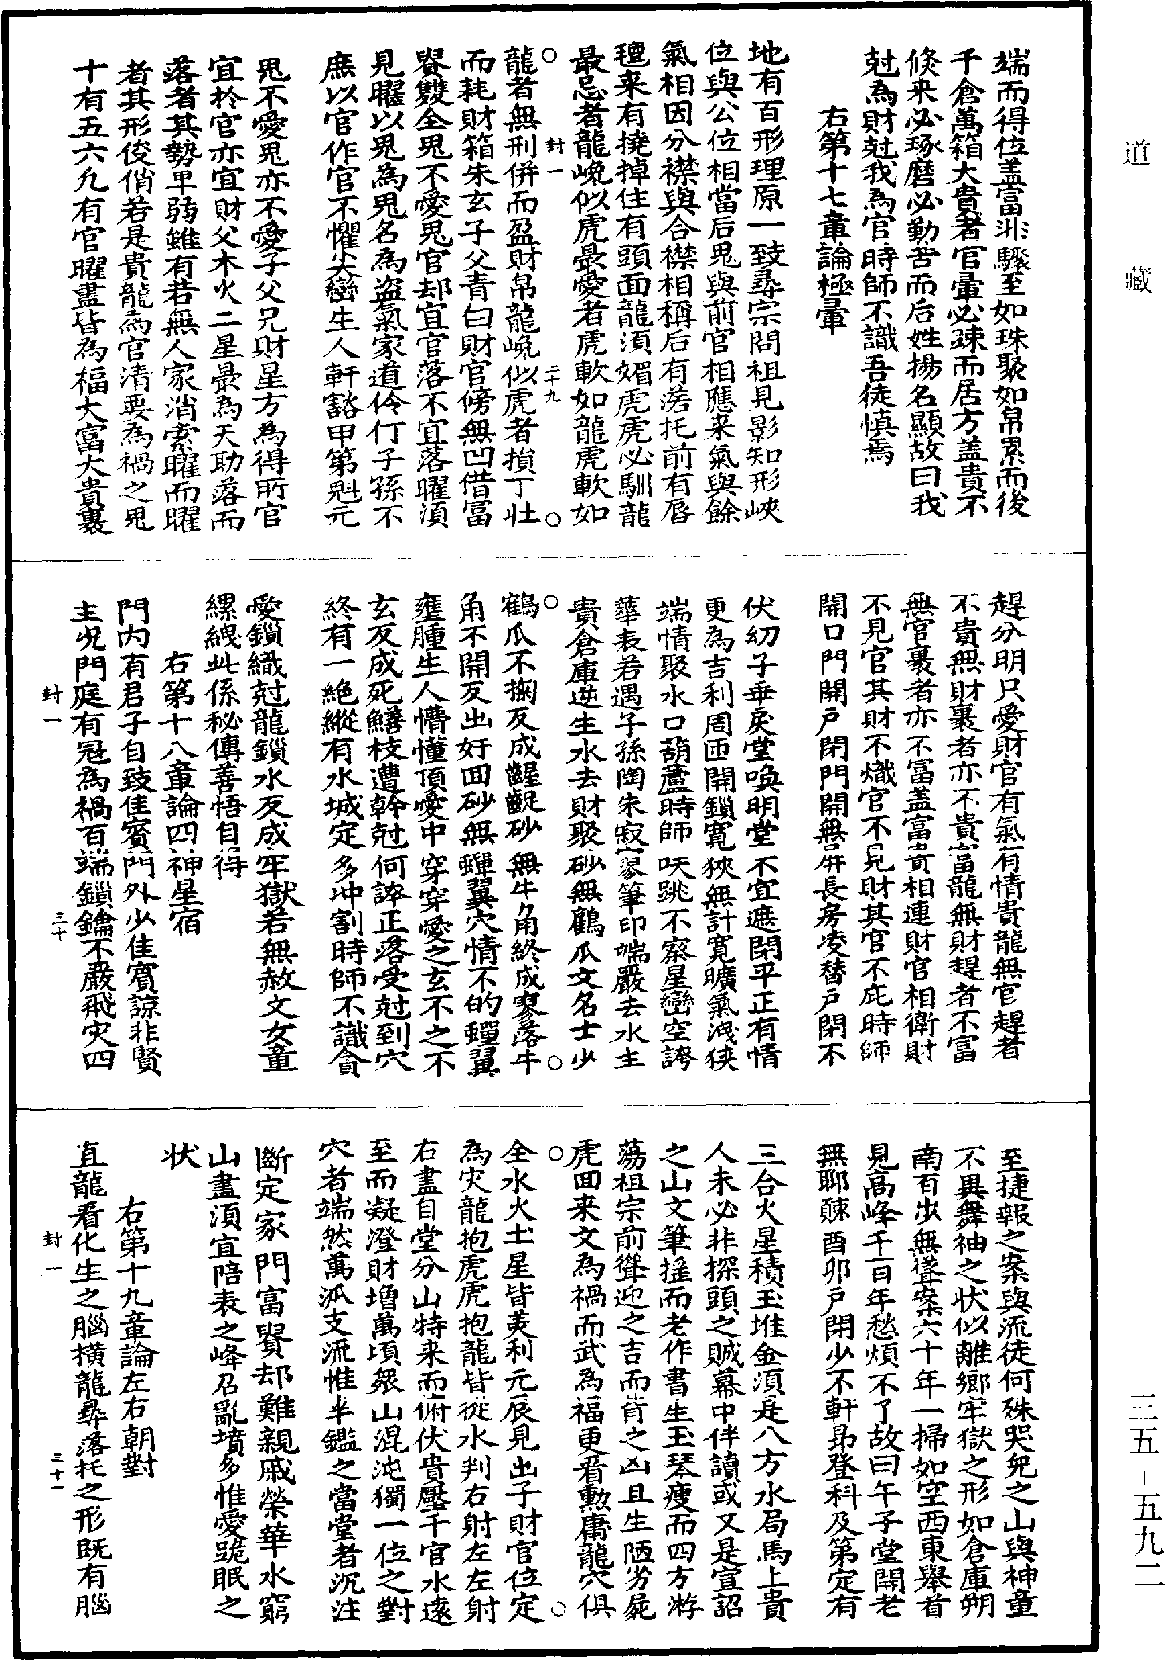 道藏
三五-五九二
端而得位盖富非驟至如珠聚如帛累而後
千倉萬箱大貴者官暈必疎而居方盖貴不
倏来必琢磨必勤苦而后姓揚名顯故曰我
尅為財尅我為官時師不識吾徒慎焉
右第十七章論極暈
地有百形理原一致尋宗問祖見影知形峽
位與公位相當后鬼與前官相應来氣與餘
氣相因分襟與合襟相稱后有落托前有唇
氊来有撓掉住有頭面龍湏媚虎虎必馴龍
最忌者龍巉似虎最愛者虎軟如龍虎軟如
封一
二十九
龍者無刑併而盈財帛龍巉似虎者損丁壯
而耗財箱朱玄子父青白財官傍無凹借富
貴雙全鬼不愛鬼官却宜官落不宜落曜湏
見曜以鬼為鬼名為盗氣家道伶仃子孫不
庶以官作官不懼尖巒生人軒豁甲第魁元
鬼不愛鬼亦不愛子父兄財星方為得所官
宜於官亦宜財父木火二星最為天助落而
落者其勢卑弱雖有若無人家消索曜而曜
者其形俊俏若是貴龍為官清要為禍之鬼
十有五六凢有官曜盡皆為福大富大貴裹
趕分明只愛財官有氣有情貴龍無官趕者
不貴無財裹者亦不貴富龍無財趕者不富
無官裹者亦不富盖富貴相連財官相衛財
不見官其財不熾官不見財其官不庇時師
開口門開戶閉門開無屏長房凌替戶閉不
伏幻子乖戾堂喚明堂不宜遮閉平正有情
更為吉利周匝開鎖寬狹無計寬曠氣洩狹
端情聚水口葫蘆時師呿跳不察星巒空誇
華表若遇子孫陶朱寂寥筆印端嚴去水主
貴倉庫逆生水去財聚砂無鶴爪文名士少
鶴爪不掬反成齷齪砂無牛角終成寥落牛
角不開反出奸回砂無蟬翼穴情不的蟬翼
壅腫生人懵懂頂愛中穿穿愛之玄不之不
玄反成死鱔枝遭幹尅何誇正落受尅到穴
終有一絕縱有水城定多冲割時師不識會
愛鎖織尅龍鎖水反成牢獄若無赦文女童
縲絏此係秘傳善悟自得
右第十八章論四神星宿
門內有君子自致佳賓門外少佳賓諒非賢
主兇門庭有冠為禍百端鎖鑰不嚴飛灾四
封一
三十
至捷報之案與流徒何殊哭兒之山與神童
不異舞袖之状似離鄉牢獄之形如倉庫朔
南有出無遮案六十年一掃如空西東舉首
見高峰千百年愁煩不了故曰午子堂開老
無耶疎酉卯戶閉少不軒昻登科及第定有
三合火星積玉堆金湏是八方水局馬上貴
人未必非探頭之賊幕中伴讀或又是宣詔
之山文筆搖而老作書生玉琴瘦而四方游
蕩祖宗前聳迎之吉而背之凶且生陋劣屍
虎回来文為禍而武為福更看勲庸龍穴俱
全水火土星皆美利元辰見出子財官位定
為灾龍抱虎虎抱龍皆從水判右射左左射
右盡自堂分山特来而俯伏貴壓千官水遠
至而凝澄財增萬頃衆山混沌獨一位之對
穴者端然萬派支流惟半鑑之當堂者沉注
斷定家門富貴却難親戚榮華水窮
山盡湏宜陪表之峰召亂墳多惟愛跪眠之
状
右第十九章論左右朝對
直龍看化生之腦横龍尋落托之形既有腦
封一
三十一